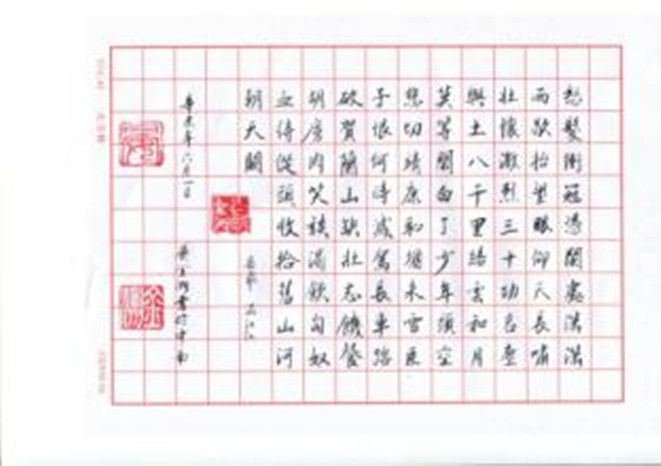 怒髮衝冠憑闌處瀟瀟
雨歇抬望眼仰天長嘯
壯懷激烈三十功名塵
與土八千里路雲和月
莫等閒白了少年頭空
悲切靖康恥猶未雪臣
子恨何時滅駕長車踏
破賀蘭山缺壯志饑餐
胡虜肉笑談渴飲匈奴
血待從頭收拾舊山河
朝天闕
六月一日